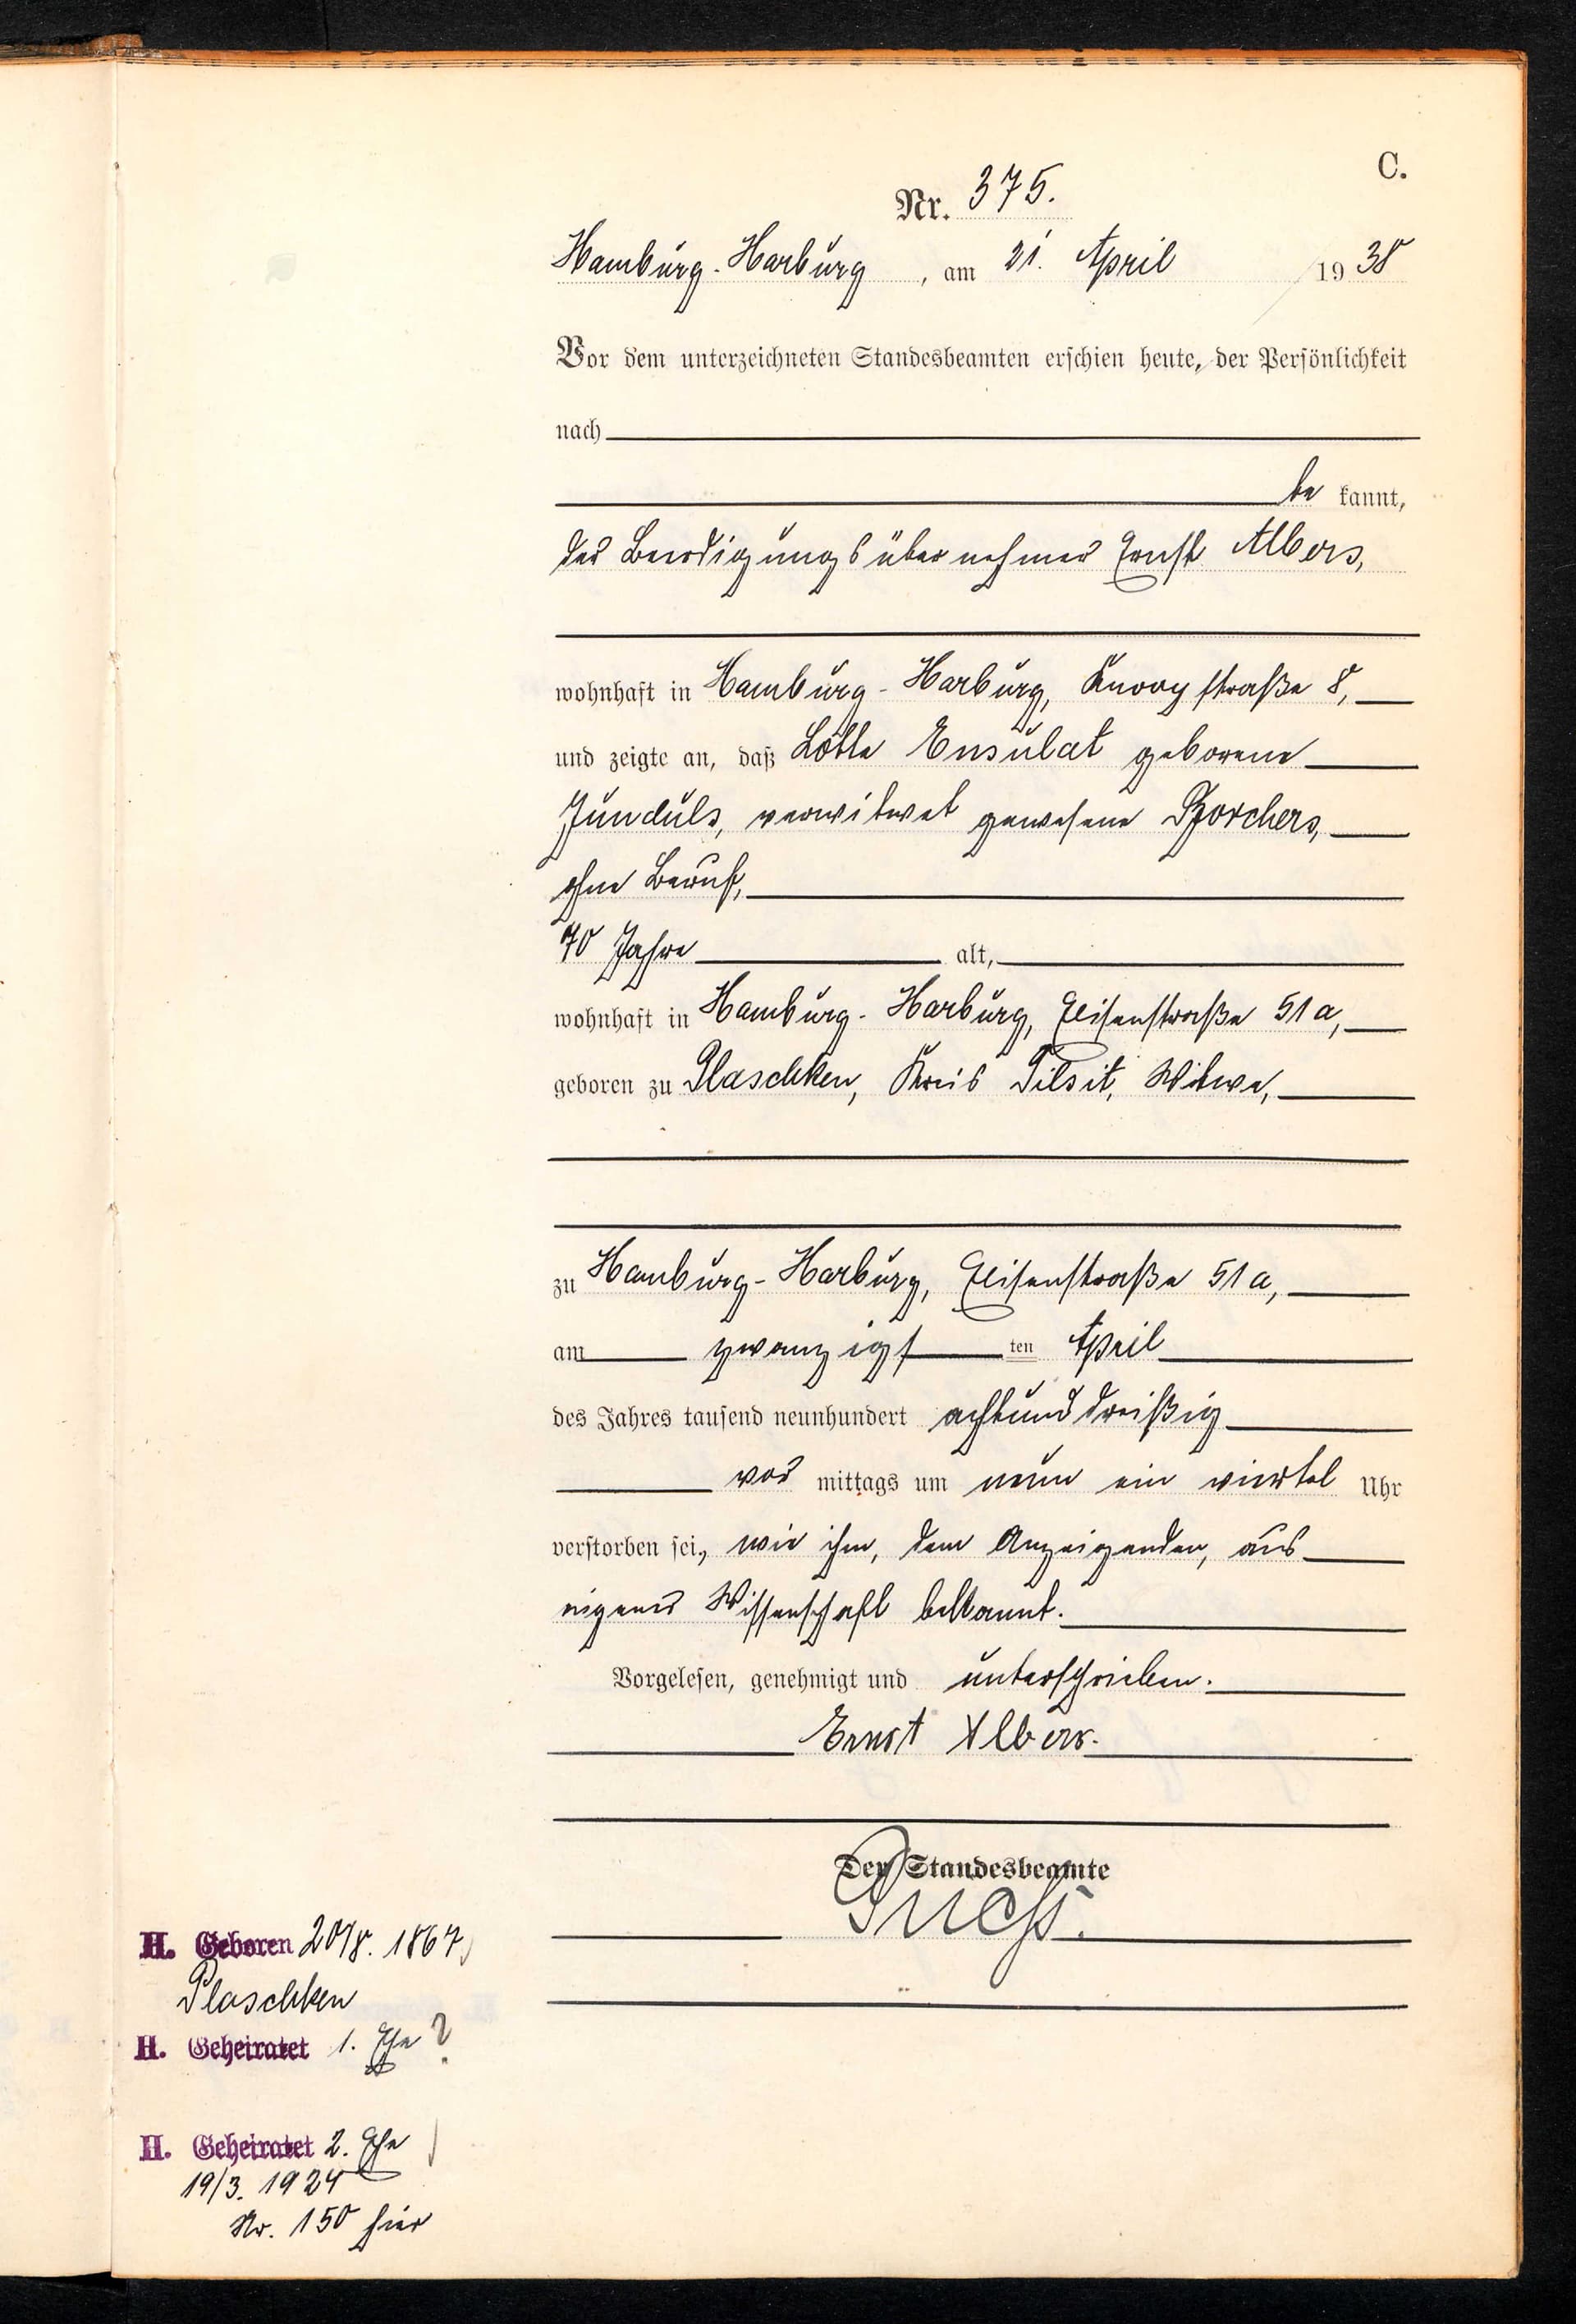 C.
Nr. 375.
Hamburg-Harburg, am 21. April 1938
Vor dem unterzeichneten Standesbeamten erschien heute, der Persönlichkeit
nach
be kannt,
der Beerdigungsübernehmer Ernst Albers,
wohnhaft in Hamburg-Harburg, Knoopstraße 8,
und zeigte an, daß Lotte Ensulat geborene
Junduls, verwitwet gewesene Borchers,
ohne Beruf,
70 Jahre alt,
wohnhaft in Hamburg-Harburg, Eißenstraße 51a,
geboren zu Plaschken, Kreis Tilsit, Witwe,
zu Hamburg-Harburg, Eißenstraße 51a,
am zwanzigsten April
des Jahres tausend neunhundert achtunddreißig
vor mittags um neun ein viertel Uhr
verstorben sei, wie ihm, dem Anzeigenden, aus
eigener Wissenschaft bekannt.
Vorgelesen, genehmigt und unterschrieben.
Ernst Albers.
Der Standesbeamte
H. Geboren 20/8. 1867
Plaschken
H. Geheiratet 1. Ehe ?
H. Geheiratet 2. Ehe
19/3. 1924
Nr. 150 hier